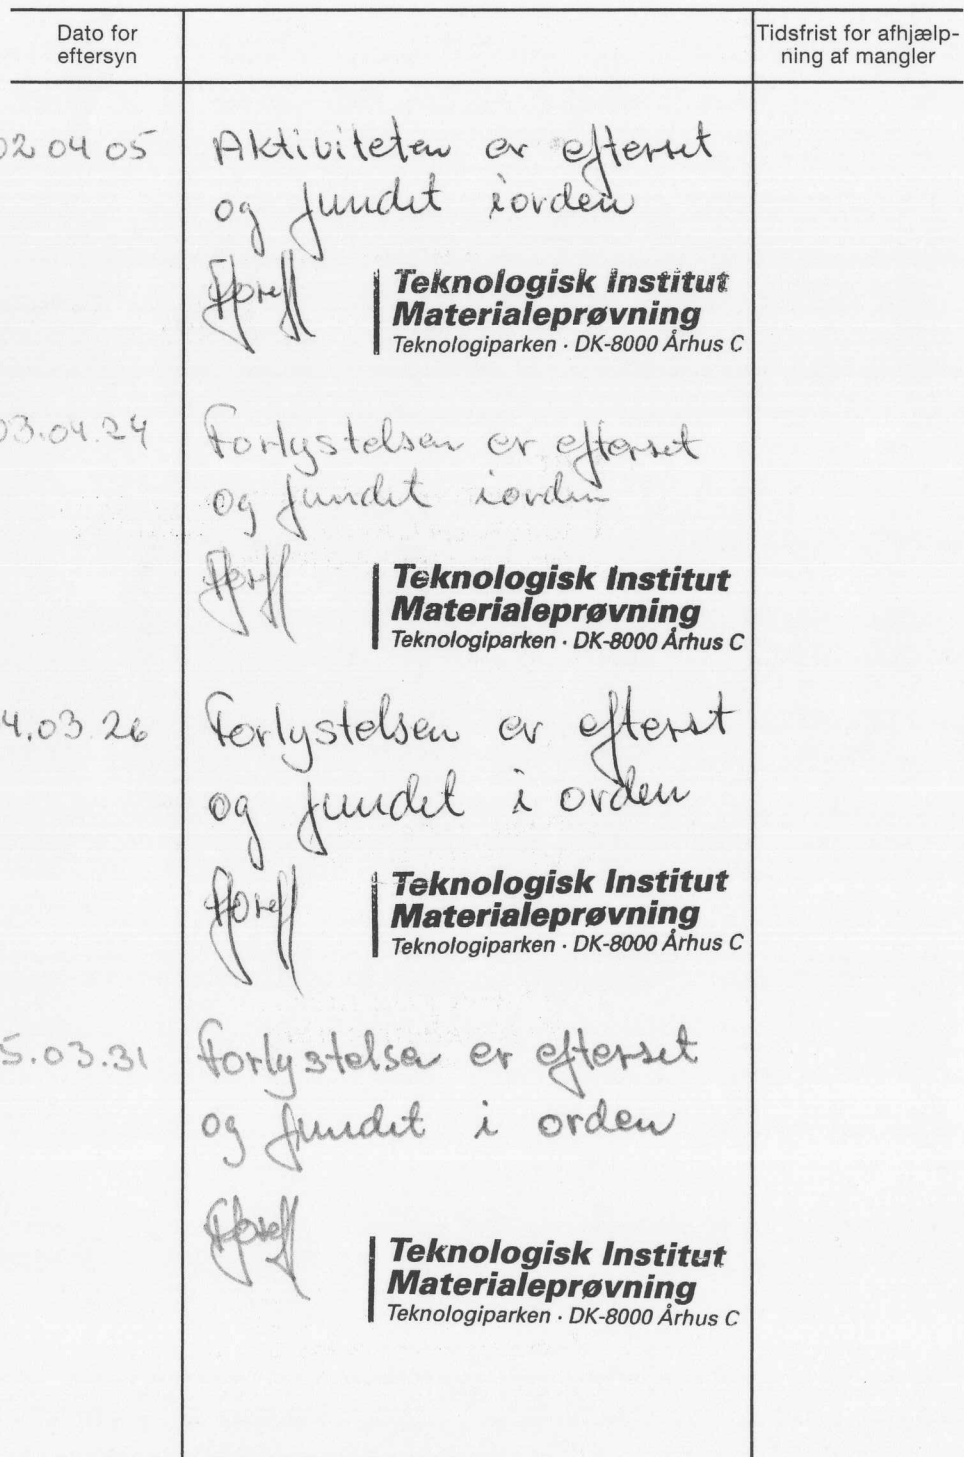 Dato for
eftersyn
Tidsfrist for afhjælp-
ning af mangler
02 04 05 Aktiviteten er efterset
og fundet iorden
Teknologisk Institut
Materialeprøvning
Teknologiparken · DK-8000 Århus C
03.04.24 Forlystelsen er efterset
og fundet iorden
Teknologisk Institut
Materialeprøvning
Teknologiparken · DK-8000 Århus C
4.03.26 Forlystelsen er efterset
og fundet i orden
Teknologisk Institut
Materialeprøvning
Teknologiparken · DK-8000 Århus C
5.03.31 Forlystelsen er efterset
og fundet i orden
Teknologisk Institut
Materialeprøvning
Teknologiparken · DK-8000 Århus C